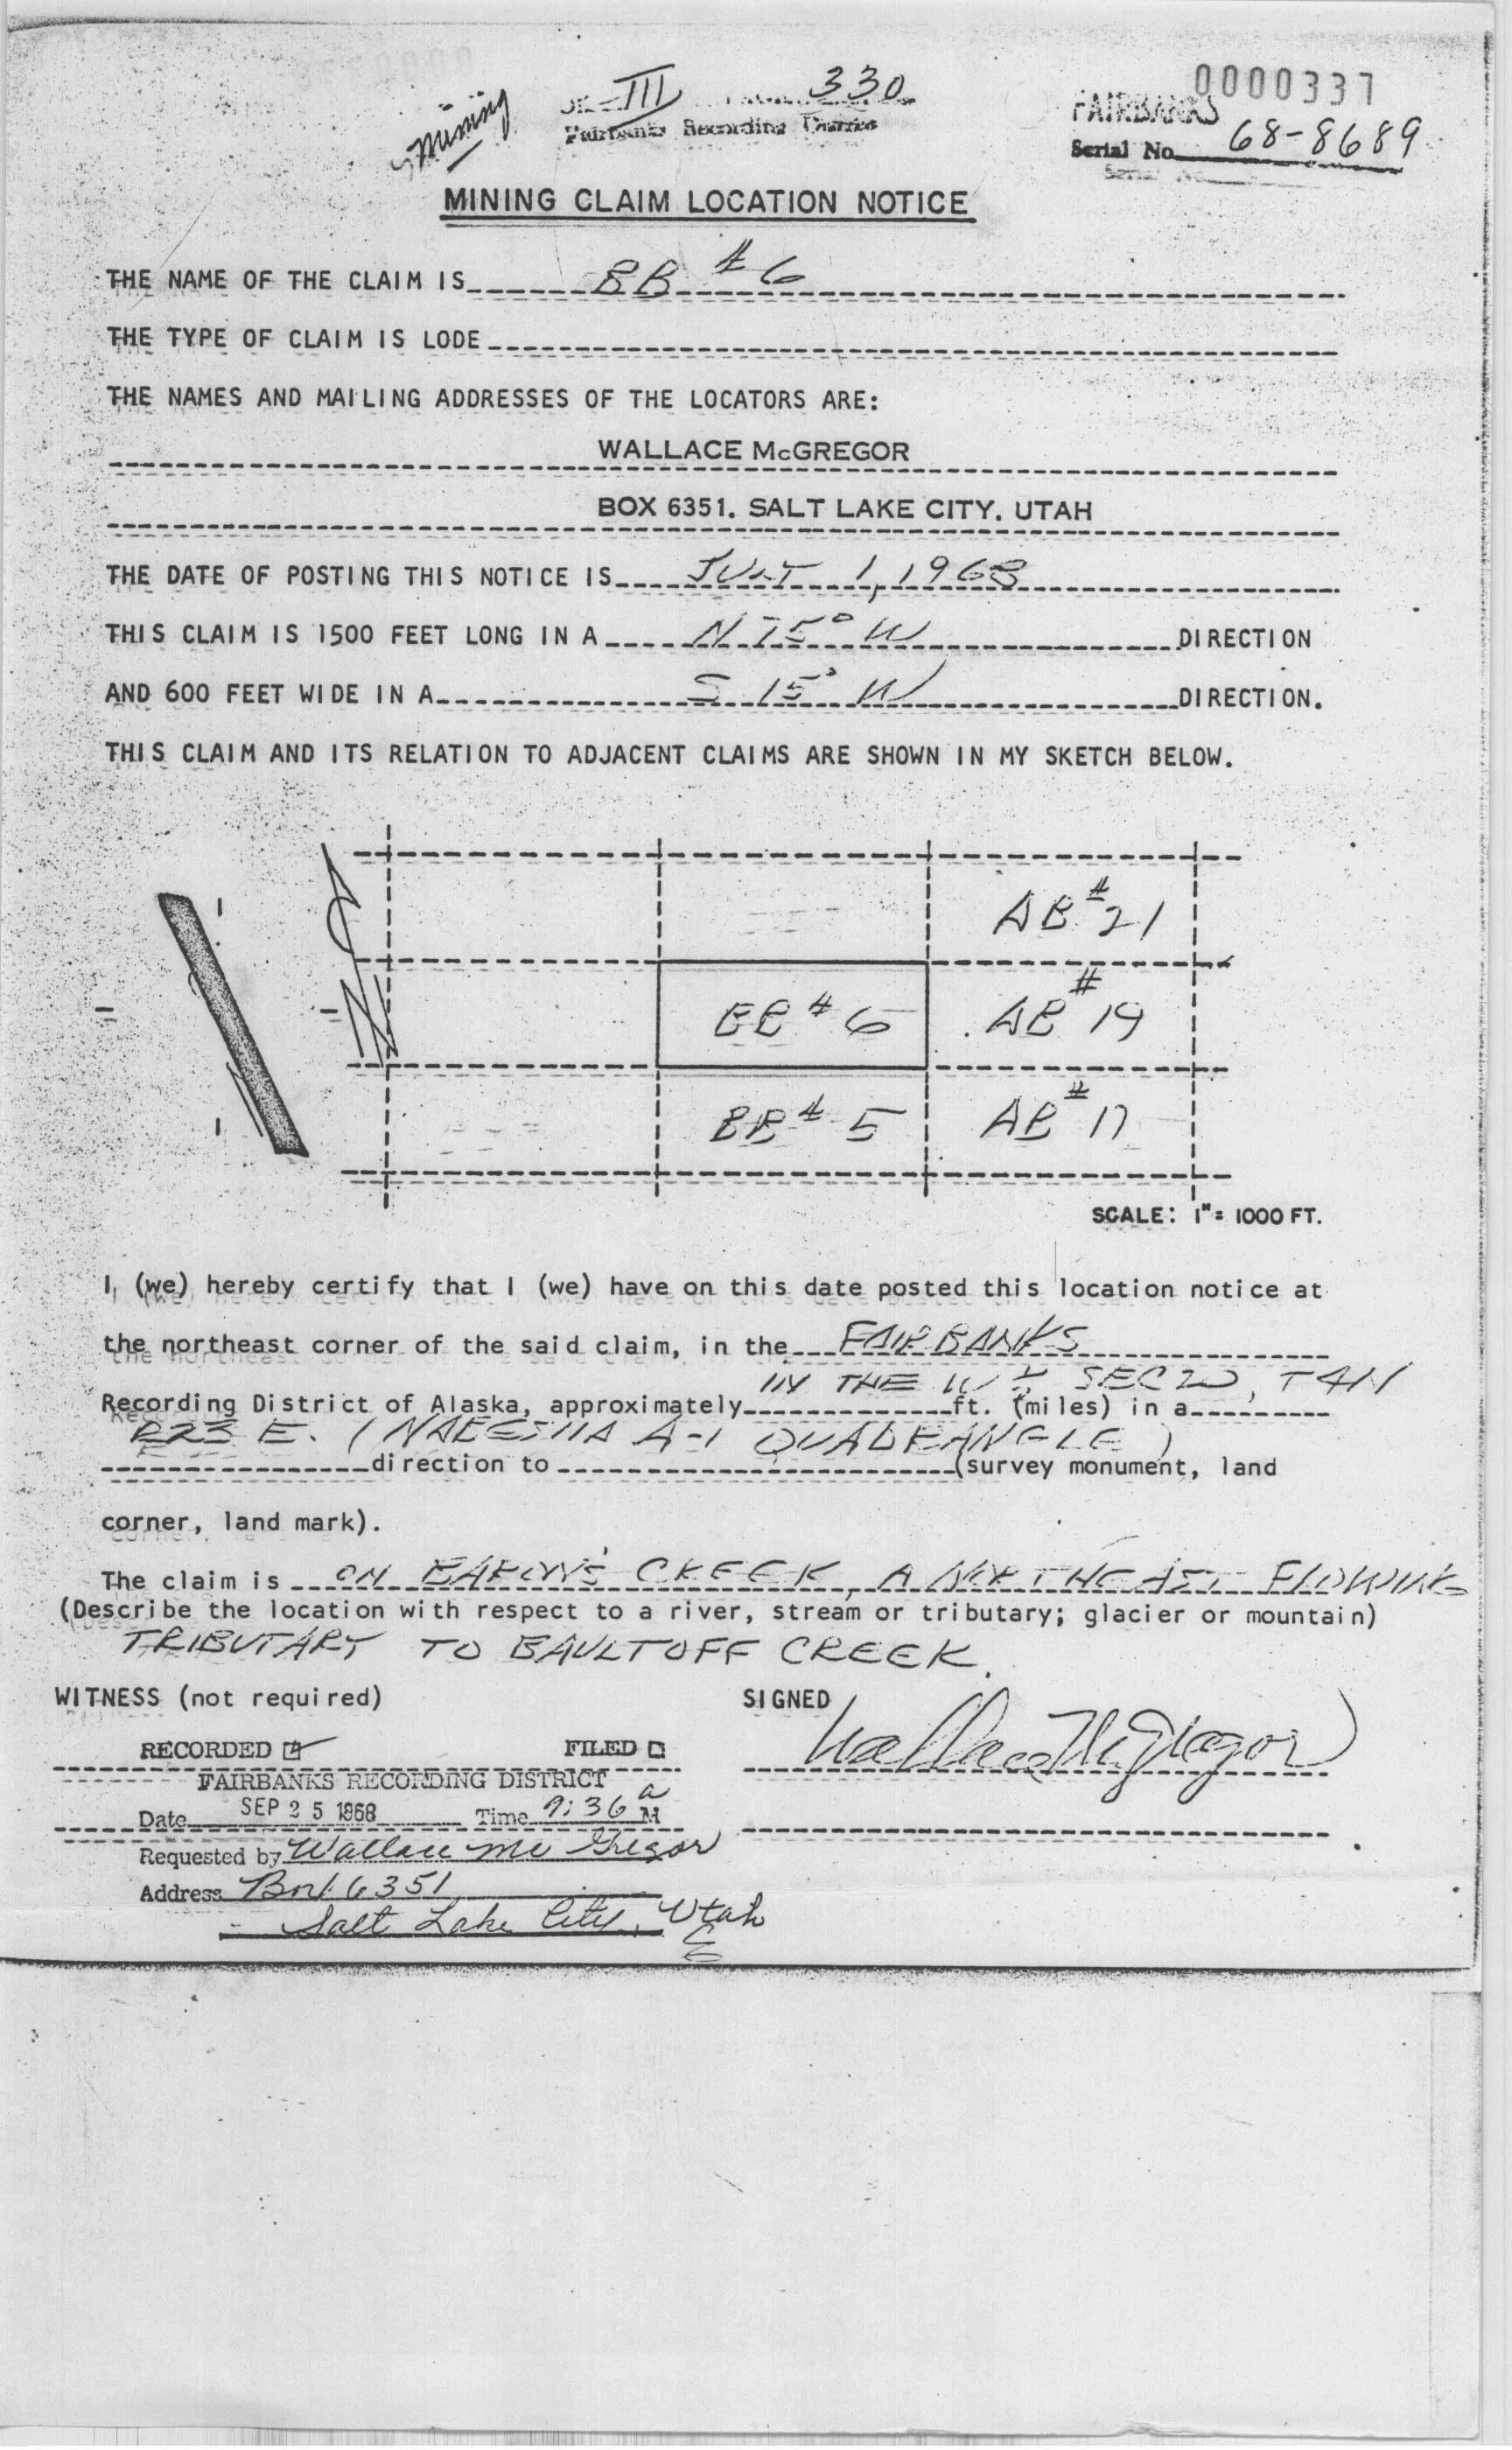 Mining III 330 0000337
Fairbanks Recording District FAIRBANKS
Serial No. 68-8689
MINING CLAIM LOCATION NOTICE
THE NAME OF THE CLAIM IS BB #6
THE TYPE OF CLAIM IS LODE
THE NAMES AND MAILING ADDRESSES OF THE LOCATORS ARE:
WALLACE McGREGOR
BOX 6351, SALT LAKE CITY, UTAH
THE DATE OF POSTING THIS NOTICE IS JULY 1, 1968
THIS CLAIM IS 1500 FEET LONG IN A N 75° W DIRECTION
AND 600 FEET WIDE IN A S 15° W DIRECTION.
THIS CLAIM AND ITS RELATION TO ADJACENT CLAIMS ARE SHOWN IN MY SKETCH BELOW.
AB #21
N
BB #6 AB #19
BB #5 AB #17
SCALE: 1"= 1000 FT.
I, (we) hereby certify that I (we) have on this date posted this location notice at
the northeast corner of the said claim, in the FAIRBANKS
IN THE W ½ SEC 20, T4N
Recording District of Alaska, approximately ft. (miles) in a
R23 E. (NABESNA A-1 QUADRANGLE)
direction to (survey monument, land
corner, land mark).
The claim is ON CREEK, A NORTHEAST FLOWING
(Describe the location with respect to a river, stream or tributary; glacier or mountain)
TRIBUTARY TO BAULTOFF CREEK.
WITNESS (not required) SIGNED
Wallace McGregor
RECORDED FILED
FAIRBANKS RECORDING DISTRICT
Date SEP 25 1968 Time 9:36 a M
Requested by Wallace McGregor
Address Box 6351
Salt Lake City, Utah